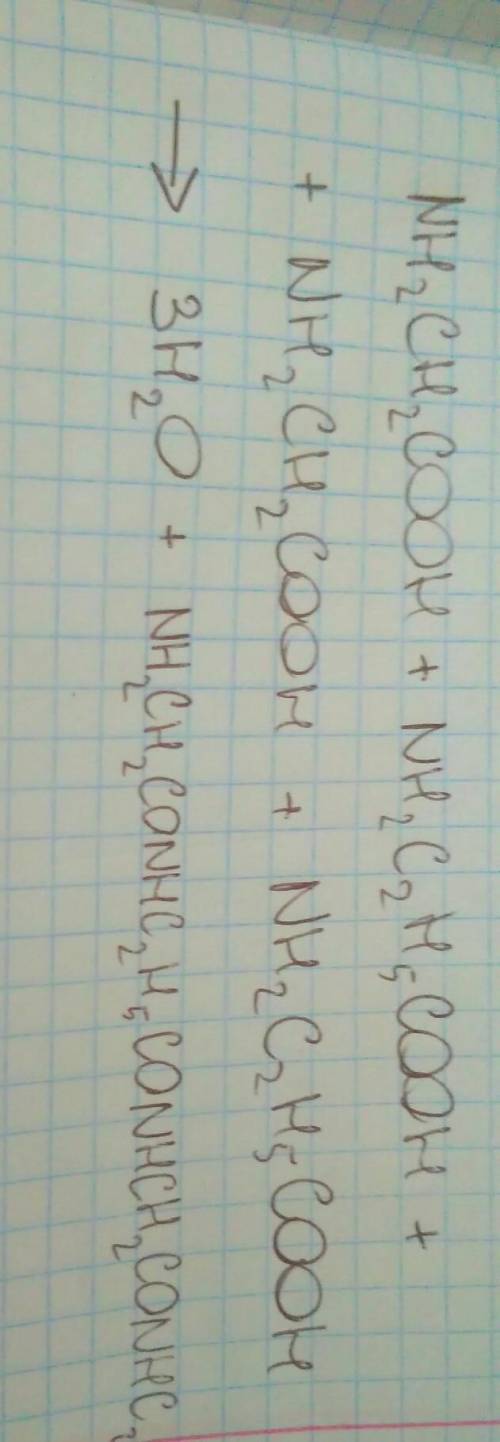 NH₂CH₂COOH + NH₂C₂H₅COOH +
+ NH₂CH₂COOH + NH₂C₂H₅COOH
→ 3H₂O + NH₂CH₂CONHC₂H₅CONHCH₂CONHC₂